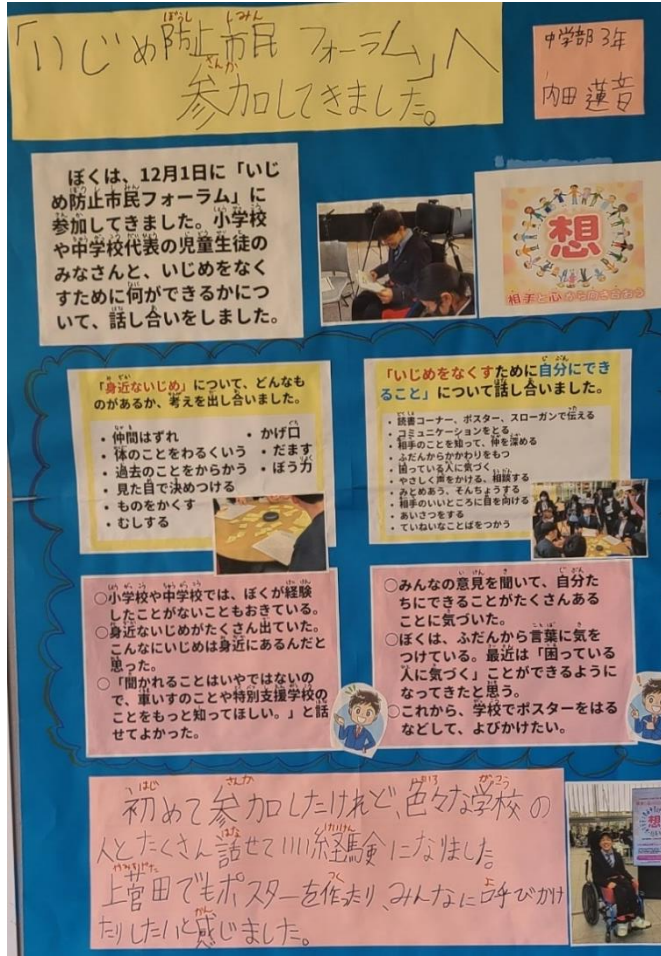 「いじめ防止市民フォーラム」へ
参加してきました。
中学部3年
内田蓮音
ぼくは、12月1日に「いじ
め防止市民フォーラム」に
参加してきました。小学校
や中学校代表の児童生徒の
みなさんと、いじめをなく
すために何ができるかにつ
いて、話し合いをしました。
想
相手と心から向き合おう
「身近ないじめ」について、どんなも
のがあるか、考えを出し合いました。
・仲間はずれ
・体のことをわるくいう
・過去のことをからかう
・見た目で決めつける
・ものをかくす
・むしする
・かげ口
・だます
・ぼう力
「いじめをなくすために自分にでき
ること」について話し合いました。
・読書コーナー、ポスター、スローガンで伝える
・コミュニケーションをとる
・相手のことを知って、仲を深める
・ふだんからかかわりをもつ
・困っている人に気づく
・やさしく声をかける、相談する
・みとめあう、そんちょうする
・相手のいいところに目を向ける
・あいさつをする
・ていねいなことばをつかう
○小学校や中学校では、ぼくが経験
したことがないこともおきている。
○身近ないじめがたくさん出ていた。
こんなにいじめは身近にあるんだと
思った。
○「聞かれることはいやではないの
で、車いすのことや特別支援学校の
ことをもっと知ってほしい。」と話
せてよかった。
○みんなの意見を聞いて、自分た
ちにできることがたくさんある
ことに気づいた。
○ぼくは、ふだんから言葉に気を
つけている。最近は「困っている
人に気づく」ことができるように
なってきたと思う。
○これから、学校でポスターをはる
などして、よびかけたい。
初めて参加したけれど、色々な学校の
人とたくさん話せていい経験になりました。
上菅田でもポスターを作ったり、みんなに呼びかけ
たりしたいと感じました。
想